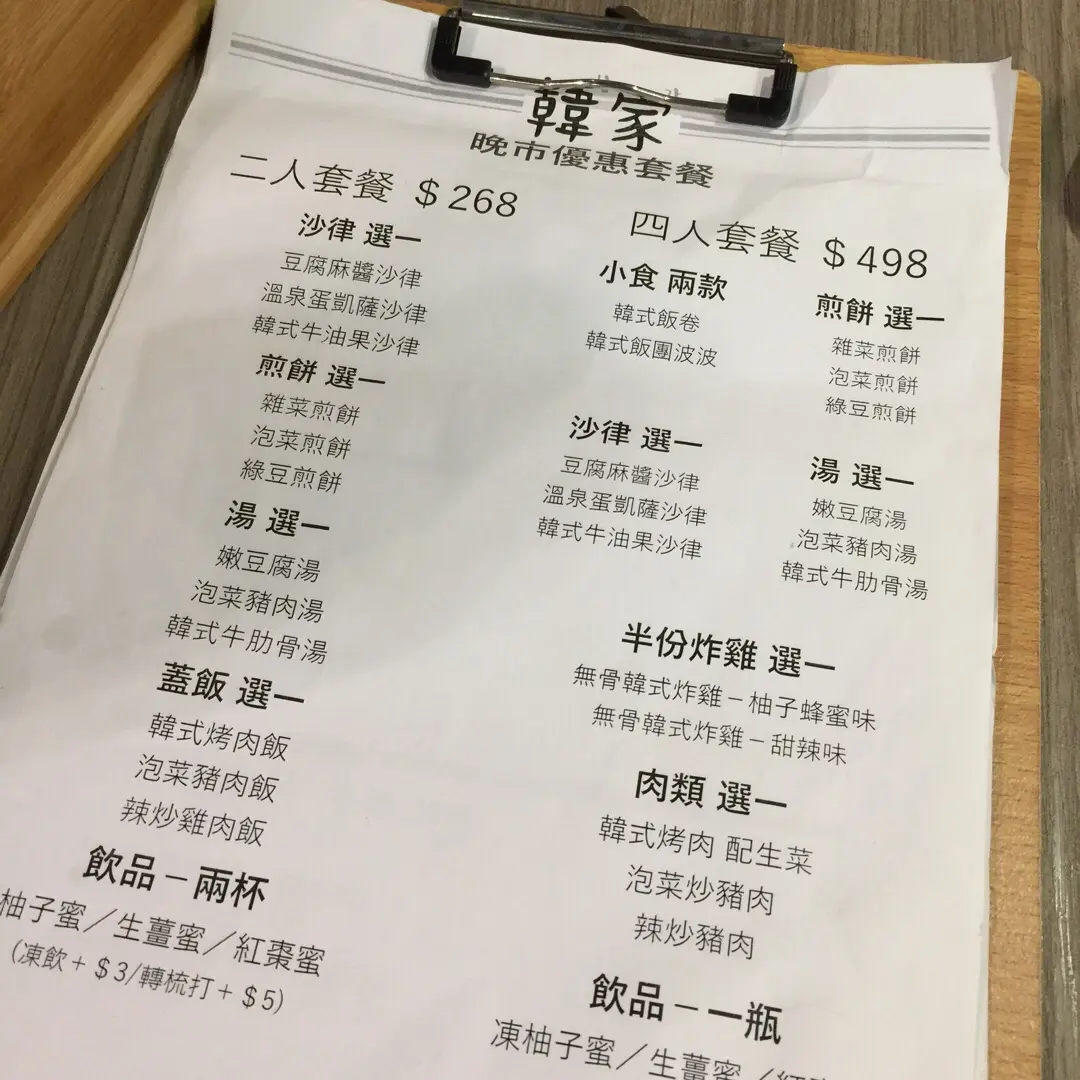 韓家
晚市優惠套餐
二人套餐 $268
沙律 選一
豆腐麻醬沙律
溫泉蛋凱薩沙律
韓式牛油果沙律
煎餅 選一
雜菜煎餅
泡菜煎餅
綠豆煎餅
湯 選一
嫩豆腐湯
泡菜豬肉湯
韓式牛肋骨湯
蓋飯 選一
韓式烤肉飯
泡菜豬肉飯
辣炒雞肉飯
飲品－兩杯
柚子蜜／生薑蜜／紅棗蜜
(凍飲+$3/轉梳打+$5)
四人套餐 $498
小食 兩款
韓式飯卷
韓式飯團波波
煎餅 選一
雜菜煎餅
泡菜煎餅
綠豆煎餅
沙律 選一
豆腐麻醬沙律
溫泉蛋凱薩沙律
韓式牛油果沙律
湯 選一
嫩豆腐湯
泡菜豬肉湯
韓式牛肋骨湯
半份炸雞 選一
無骨韓式炸雞－柚子蜂蜜味
無骨韓式炸雞－甜辣味
肉類 選一
韓式烤肉 配生菜
泡菜炒豬肉
辣炒豬肉
飲品－一瓶
凍柚子蜜／生薑蜜／紅